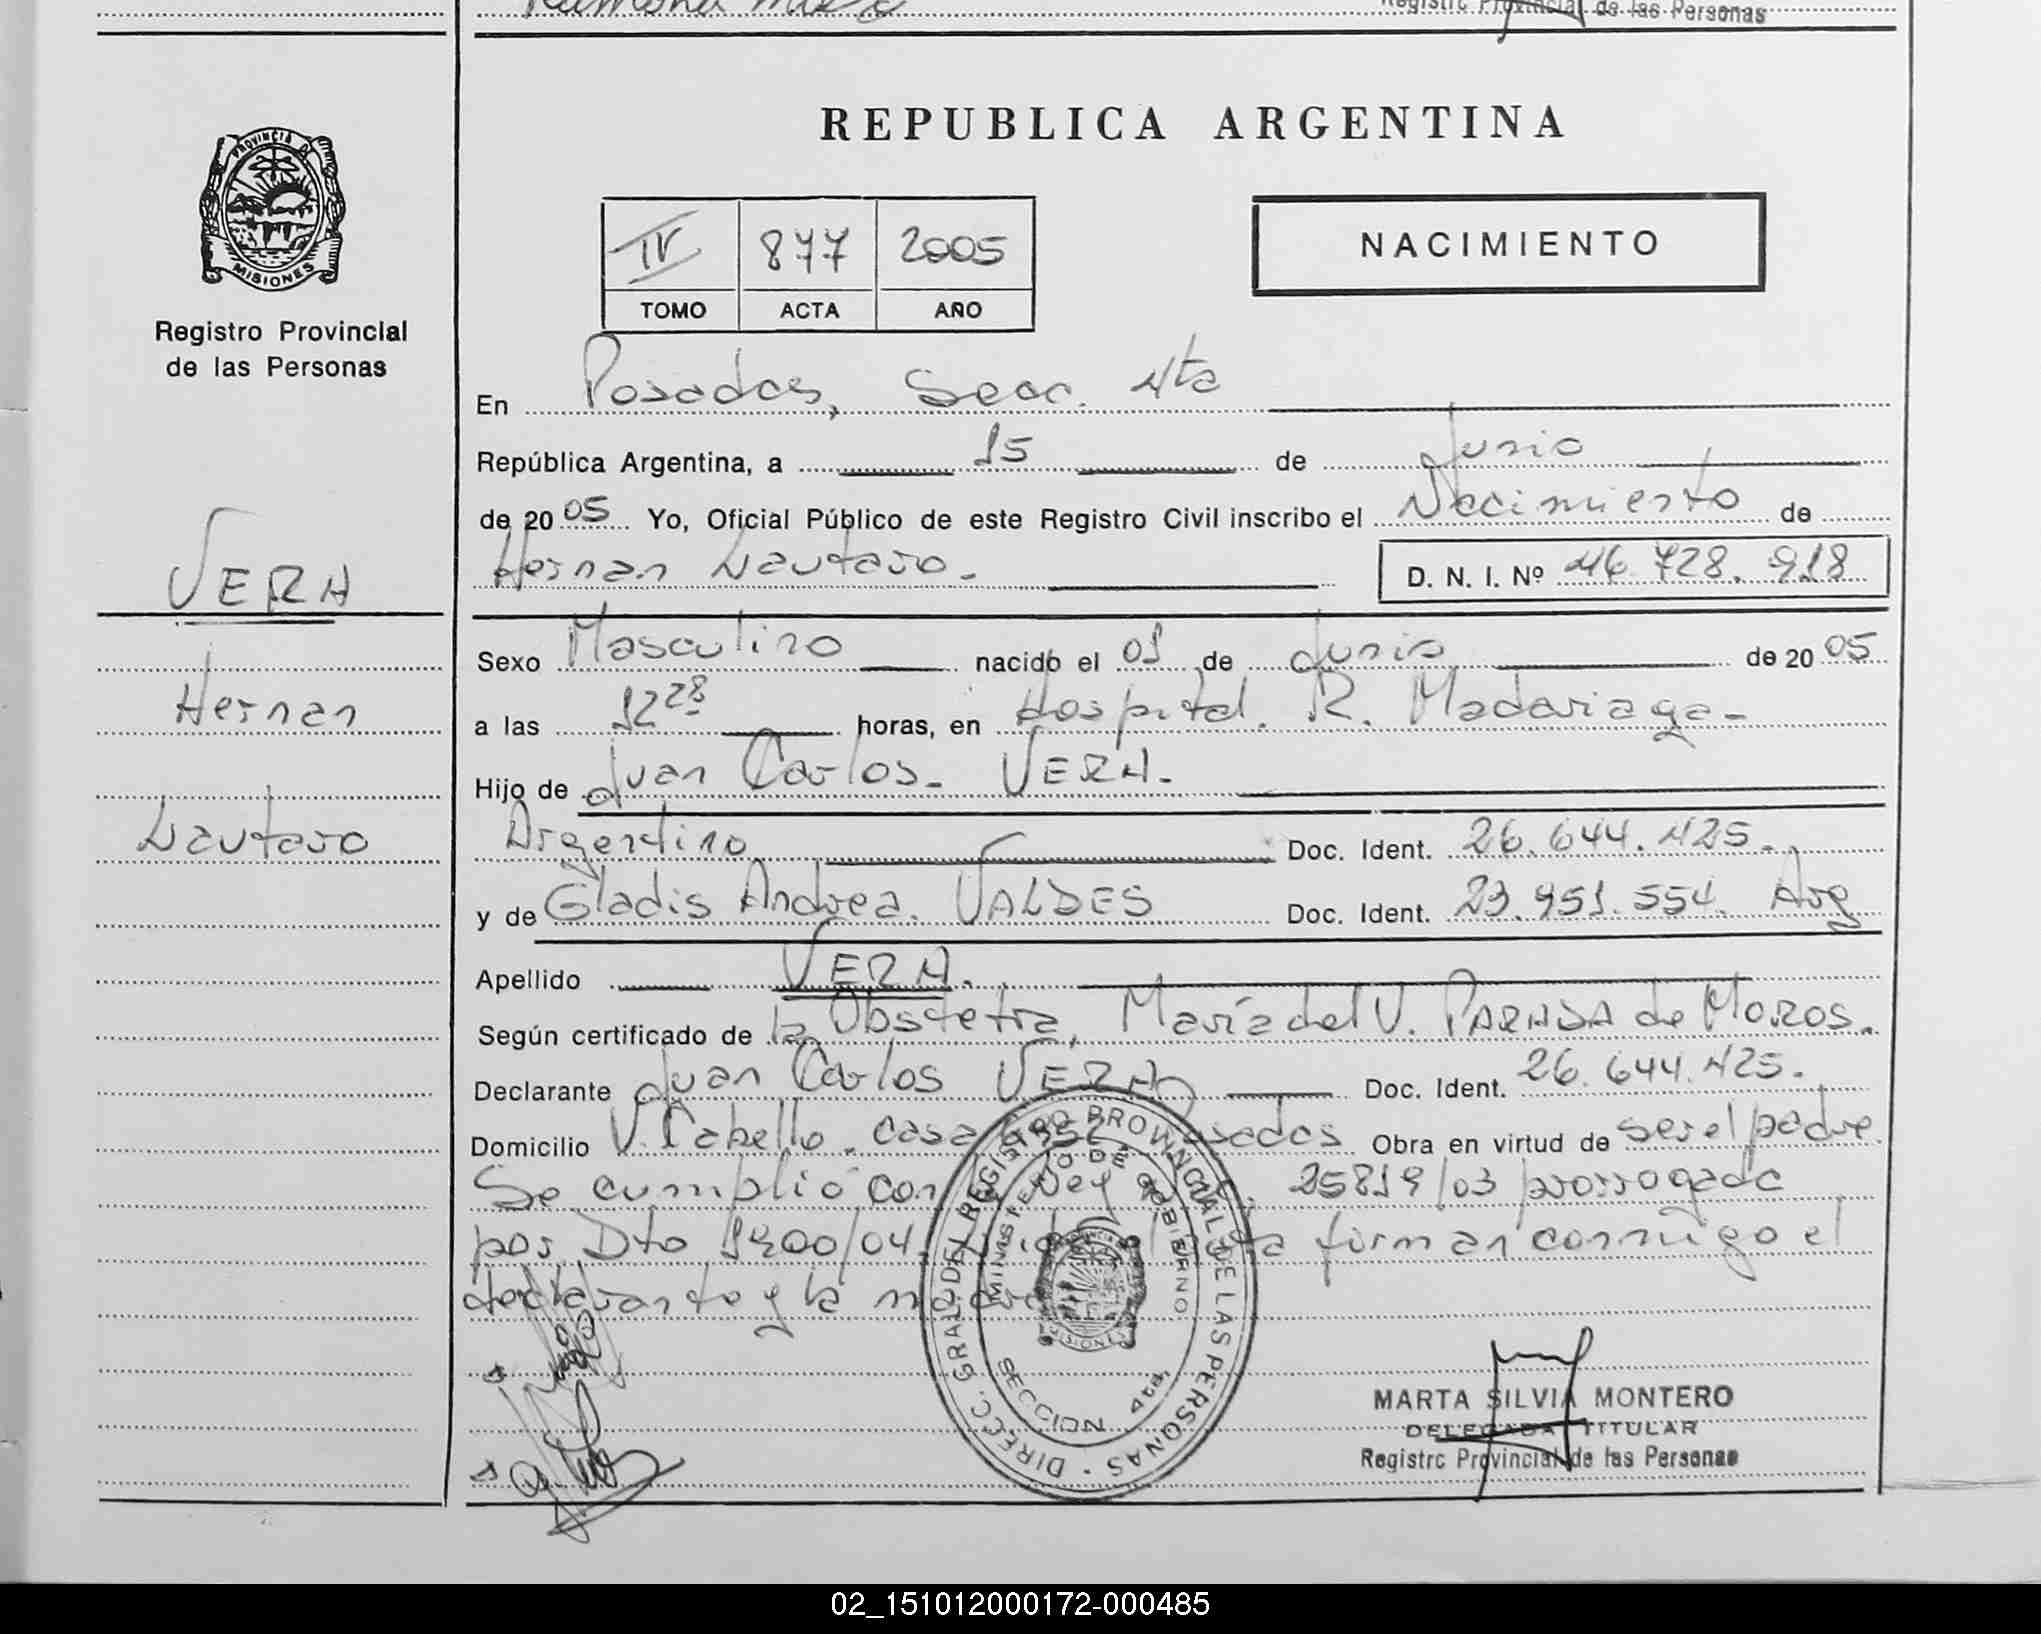 Registro Provincial de las Personas
PROVINCIA DE
MISIONES
Registro Provincial
de las Personas
VERA
Hernan
Lautaro
REPUBLICA ARGENTINA
IV 877 2005
TOMO ACTA AÑO
NACIMIENTO
En Posadas, Secc. 4ta
República Argentina, a 15 de Junio
de 2005 Yo, Oficial Público de este Registro Civil inscribo el Nacimiento de
Hernan Lautaro. D. N. I. Nº 46.728.918
Sexo Masculino nacido el 01 de Junio de 2005
a las 12 28 horas, en Hospital. R. Madariaga-
Hijo de Juan Carlos- VERA-
Argentino Doc. Ident. 26.644.425-
y de Gladis Andrea. VALDES Doc. Ident. 23.951.554. Arg
Apellido VERA.
Según certificado de la Obstetra, María del V. PARADA de MOROS.
Declarante Juan Carlos VERA Doc. Ident. 26.644.425.
Domicilio V. Cabello. casa Posadas Obra en virtud de ser el padre
Se cumplió con la Ley 25819/03 prorrogada
por Dto 1900/04. firman conmigo el
declarante y la madre
DIRECC. GRAL. DEL REGISTRO PROVINCIAL DE LAS PERSONAS
MINISTERIO DE GOBIERNO
MISIONES
SECCION 4ta.
MARTA SILVIA MONTERO
DELEGADA TITULAR
Registro Provincial de las Personas
02_151012000172-000485